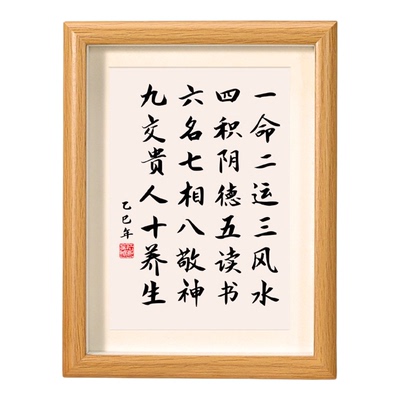 一命二运三风水
四积阴德五读书
六名七相八敬神
九交贵人十养生
乙巳年